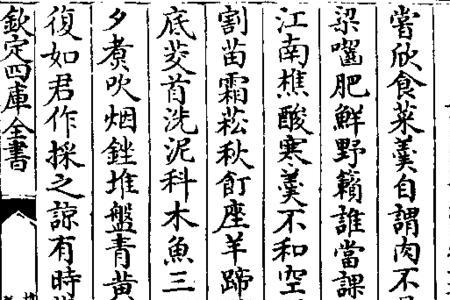 嘗欣食菜羮自謂肉不
梁囓肥鮮野籟誰當課
江南樵酸寒羮不和空
割苗霜菘秋飣座羊蹄
底茭首洗泥科木魚三
夕煮吹烟銼堆盤青黄
復如君作採之諒有時
欽定四庫全書